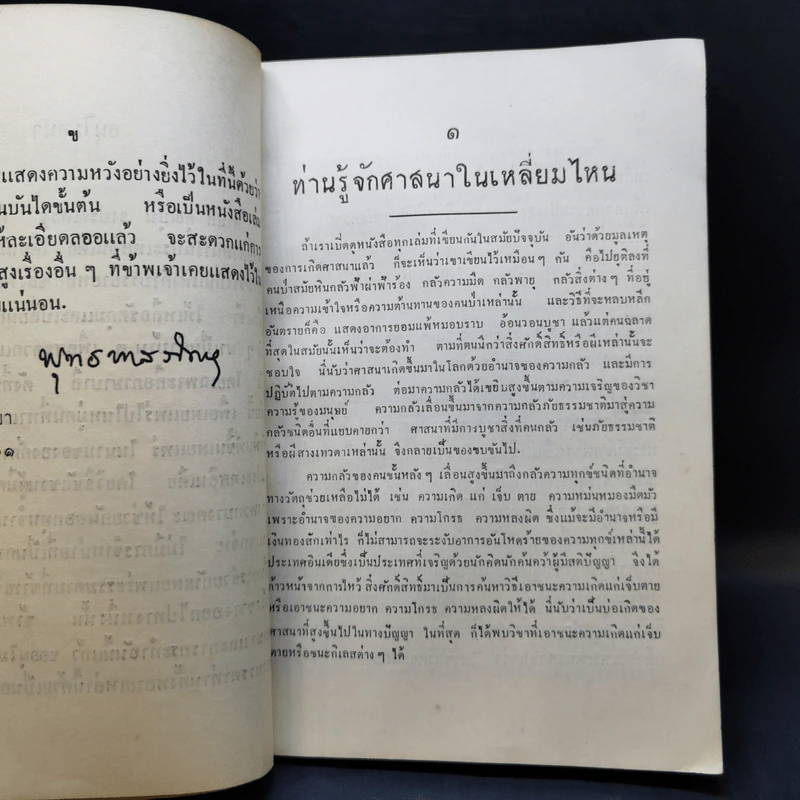 ข
แสดงความหวังอย่างยิ่งไว้ในที่นี้ด้วยว่า
บันไดขั้นต้น หรือเป็นหนังสือเล่ม
ละเอียดลออแล้ว จะสะดวกแก่การ
สูงเรื่องอื่น ๆ ที่ข้าพเจ้าเคยแสดงไว้ใน
แน่นอน.
พุทธทาสภิกขุ
๑
ท่านรู้จักศาสนาในเหลี่ยมไหน
ถ้าเราเปิดดูหนังสือทุกเล่มที่เขียนกันในสมัยปัจจุบัน อันว่าด้วยมูลเหตุ
ของการเกิดศาสนาแล้ว ก็จะเห็นว่าเขาเขียนไว้เหมือนๆ กัน คือไปยุติลงที่
คนป่าสมัยหินกลัวฟ้าผ่าฟ้าร้อง กลัวความมืด กลัวพายุ กลัวสิ่งต่างๆ ที่อยู่
เหนือความเข้าใจหรือความต้านทานของคนป่าเหล่านั้น และวิธีที่จะหลบหลีก
อันตรายก็คือ แสดงอาการยอมแพ้หมอบราบ อ้อนวอนบูชา แล้วแต่คนฉลาด
ที่สุดในสมัยนั้นเห็นว่าจะต้องทำ ตามที่ตนนึกว่าสิ่งศักดิ์สิทธิ์หรือผีเหล่านั้นจะ
ชอบใจ นี่นับว่าศาสนาเกิดขึ้นมาในโลกด้วยอำนาจของความกลัว และมีการ
ปฏิบัติไปตามความกลัว ต่อมาความกลัวได้เขยิบสูงขึ้นตามความเจริญของวิชา
ความรู้ของมนุษย์ ความกลัวเลื่อนขึ้นมาจากความกลัวภัยธรรมชาติมาสู่ความ
กลัวชนิดอื่นที่แยบคายกว่า ศาสนาที่มีการบูชาสิ่งที่คนกลัว เช่นภัยธรรมชาติ
หรือผีสางเทวดาเหล่านั้น จึงกลายเป็นของขบขันไป.
ความกลัวของคนชั้นหลังๆ เลื่อนสูงขึ้นมาถึงกลัวความทุกข์ชนิดที่อำนาจ
ทางวัตถุช่วยเหลือไม่ได้ เช่น ความเกิด แก่ เจ็บ ตาย ความหม่นหมองมืดมัว
เพราะอำนาจของความอยาก ความโกรธ ความหลงผิด ซึ่งแม้จะมีอำนาจหรือมี
เงินทองสักเท่าไร ก็ไม่สามารถจะระงับอาการอันโหดร้ายของความทุกข์เหล่านี้ได้
ประเทศอินเดียซึ่งเป็นประเทศที่เจริญด้วยนักคิดนักค้นคว้าผู้มีสติปัญญา จึงได้
ก้าวหน้าจากการไหว้ สิ่งศักดิ์สิทธิ์มาเป็นการค้นหาวิธีเอาชนะความเกิดแก่เจ็บตาย
หรือเอาชนะความอยาก ความโกรธ ความหลงผิดให้ได้ นี่นับว่าเป็นบ่อเกิดของ
ศาสนาที่สูงขึ้นไปในทางปัญญา ในที่สุด ก็ได้พบวิชาที่เอาชนะความเกิดแก่เจ็บ
ตายหรือชนะกิเลสต่างๆ ได้